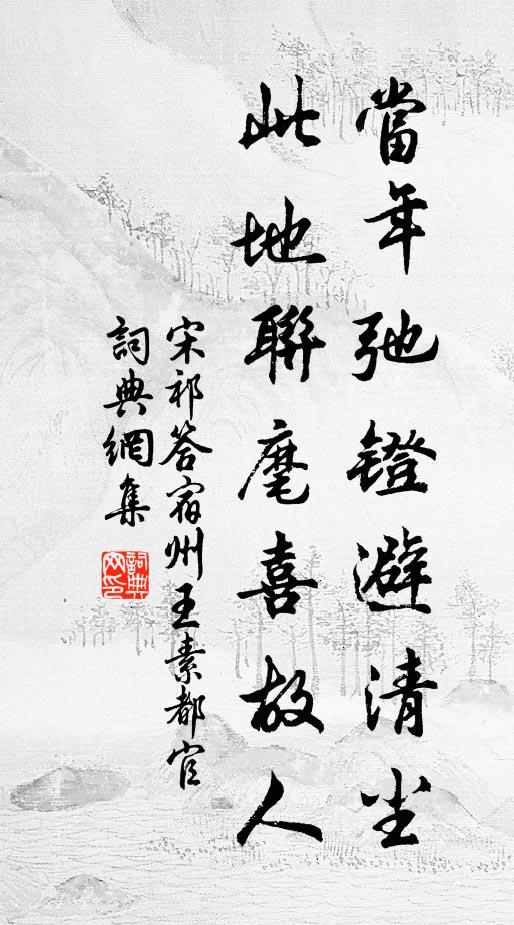 當年弛鐙避清尘
此地聯麾喜故人
宋祁答宿州王素都官
詞典網集
詞典网印